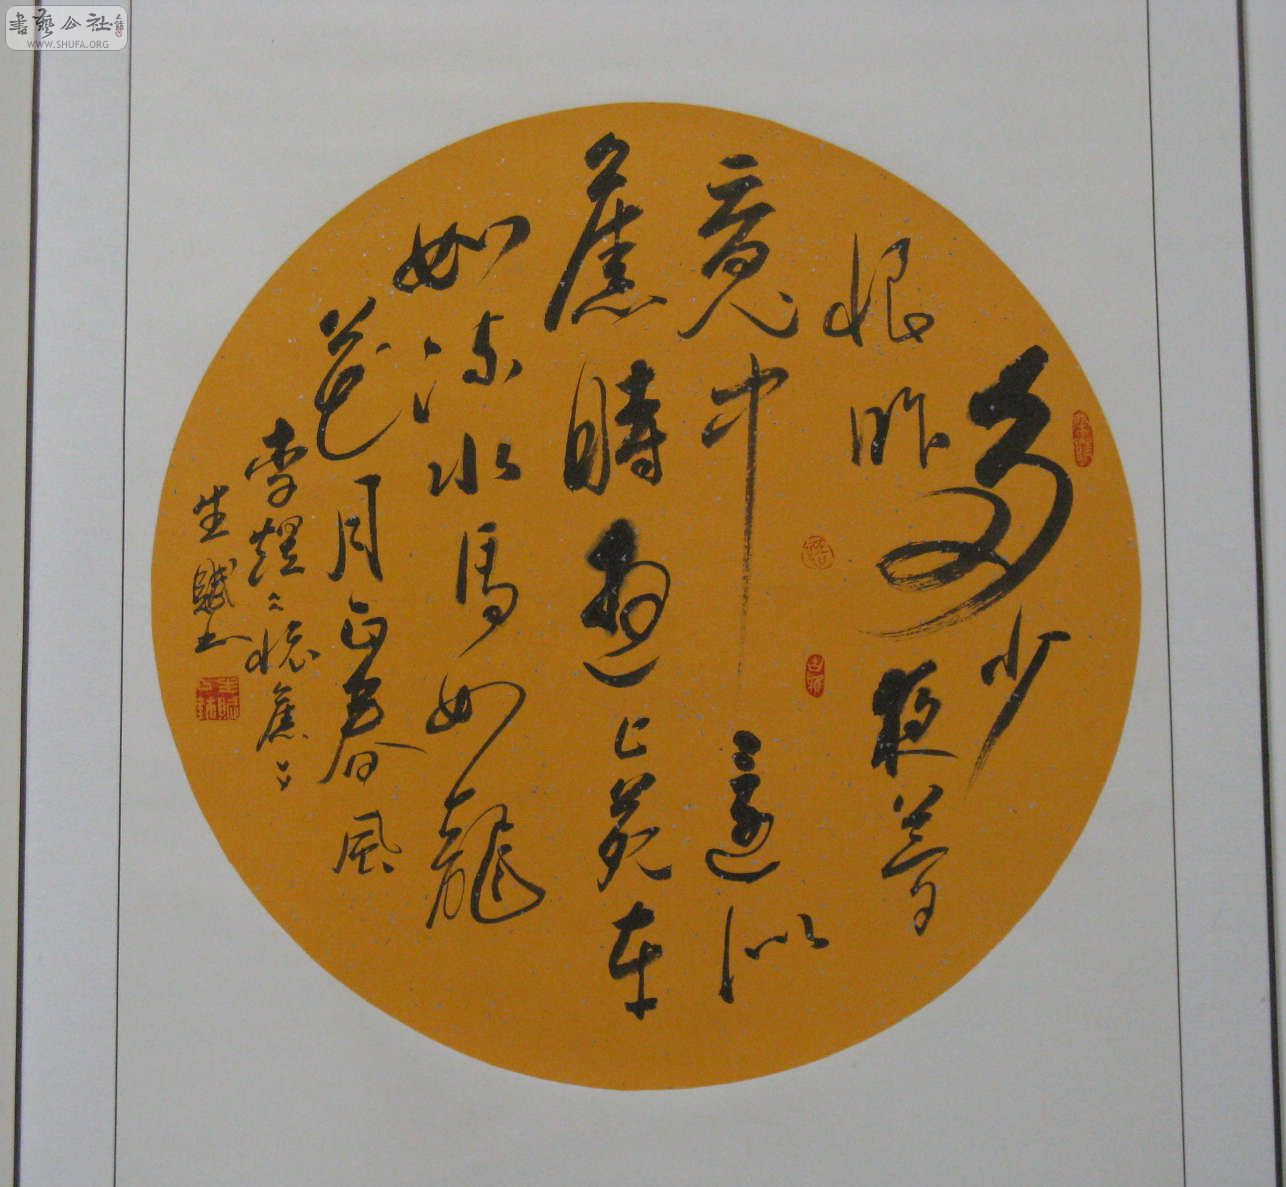 書藝公社
WWW.SHUFA.ORG
多少
恨昨夜夢
魂中還似
舊時遊上苑車
如流水馬如龍
花月正春風
李煜 憶舊
生賦書